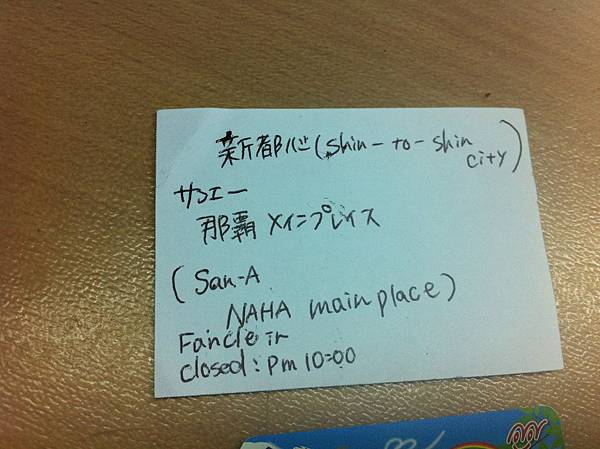 新都心(shin-to-shin
city)
サンエー
那覇 メインプレイス
(San-A
NAHA main place)
Fancle in
closed: pm 10:00